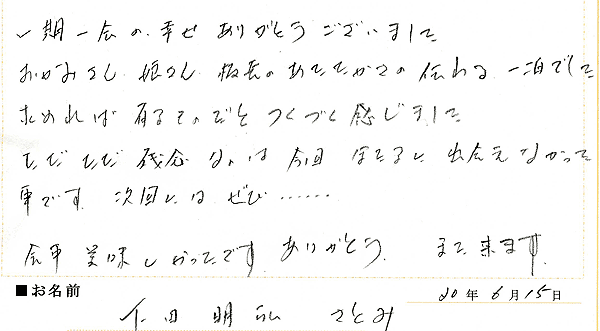 一期一会の幸せありがとうございました
おかみさん 娘さん 板長のあたたかさの伝わる一泊でした
求めれば有るものだとつくづく感じました
ただただ残念なのは今回ほたるに出会えなかった
事です 次回にはぜひ……
食事美味しかったです ありがとう。また来ます
■お名前
20年6月15日
下田 明弘 さとみ